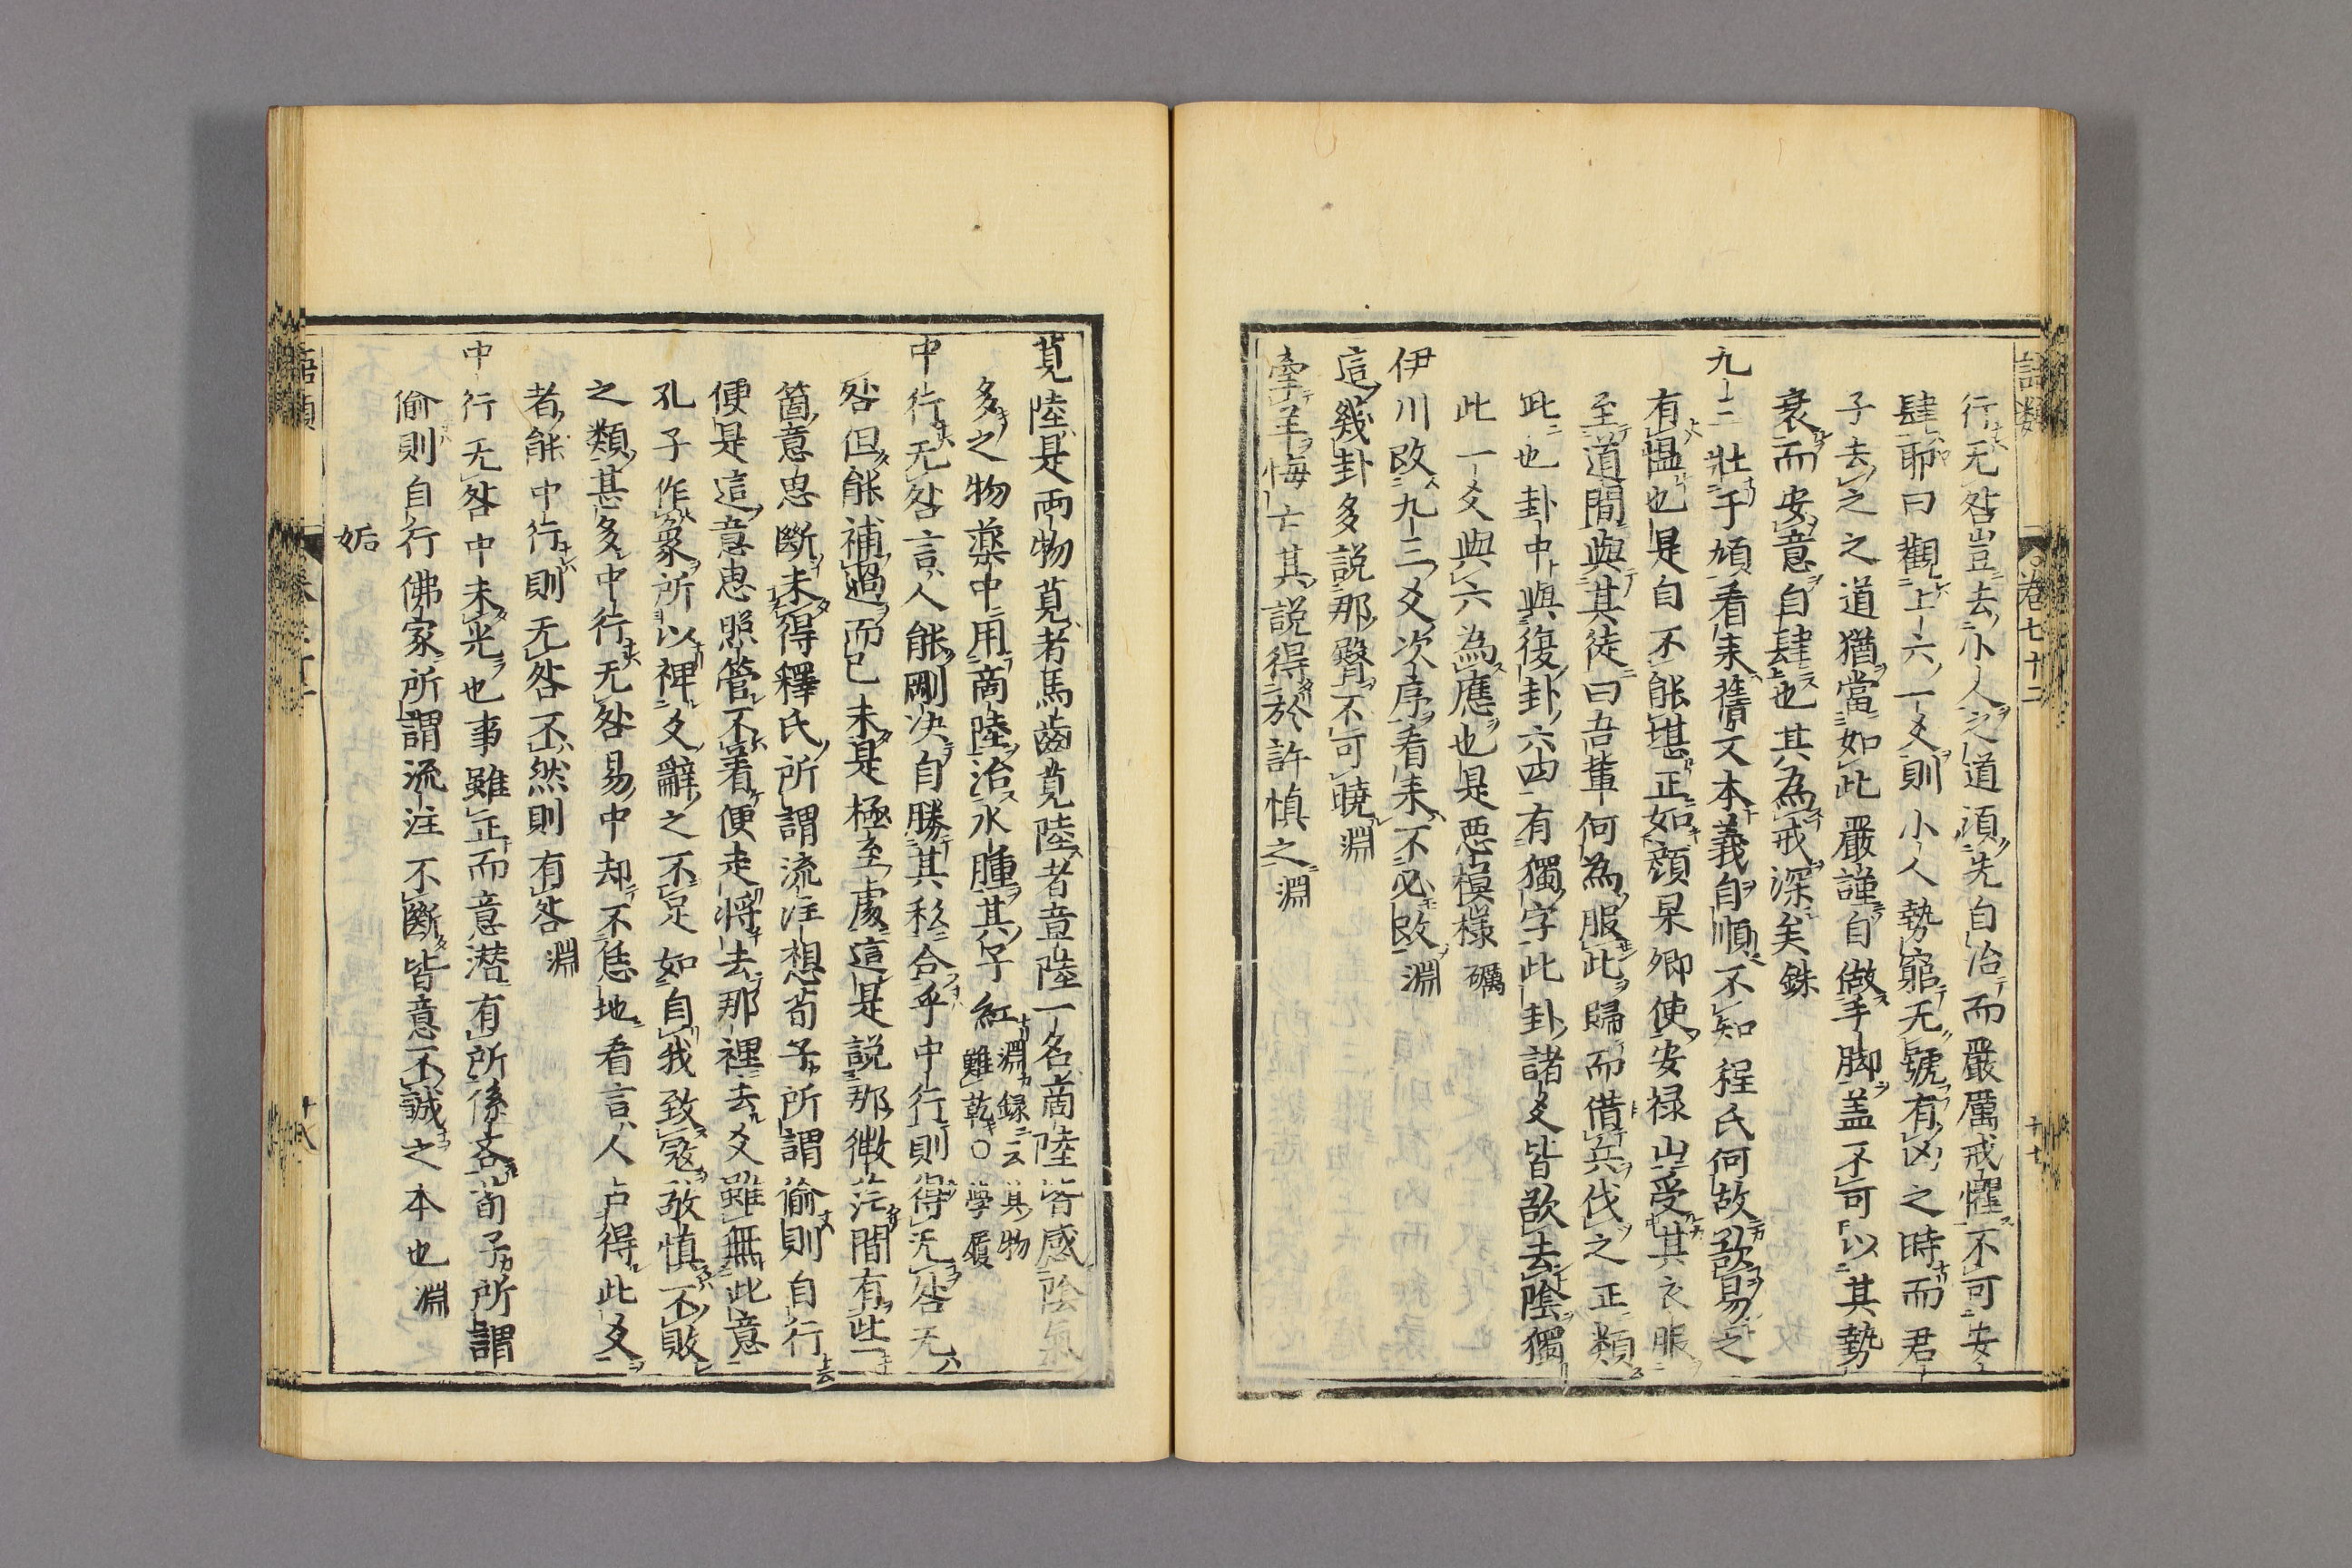 語類 卷七十二 十七
行无咎豈去小人之道須先自治而嚴厲戒懼不可安
肆耶曰觀上六一爻則小人勢窮无號有凶之時而君
子去之之道猶當如此嚴謹自做手脚盖不可以其勢
衰而安意自肆也其為戒深矣銖
九三壯于頄看来舊文本義自順不知程氏何故欲易之
有慍也是自不能堪正如顔杲卿使安禄山受其衣服
至道間與其徒曰吾輩何為服此歸而借兵伐之正類
此也卦中與復卦六四有獨字此卦諸爻皆欲去陰獨
此一爻與六為應也是惡模様礪
伊川改九三爻次序看来不必改淵
這幾卦多説那臀不可曉淵
牽羊悔亡其説得於許慎之淵
莧陸是兩物莧者馬齒莧陸者章陸一名商陸皆感陰氣
多之物藥中用商陸治水腫其子紅 淵録云其物難乾○學履
中行无咎言人能剛决自勝其私合乎中行則得无咎无
咎但能補過而已未是極至處這是説那微茫間有些
箇意思斷未得釋氏所謂流注想荀子所謂偷則自行
便是這意思照管不着便走将去那裡去爻雖無此意
孔子作象所以裨爻辭之不足如自我致寇敬慎不敗
之類甚多中行无咎易中却不恁地看言人占得此爻
者能中行則无咎不然則有咎淵
中行无咎中未光也事雖正而意潜有所係吝荀子所謂
偷則自行佛家所謂流注不斷皆意不誠之本也淵
姤
語類
十八